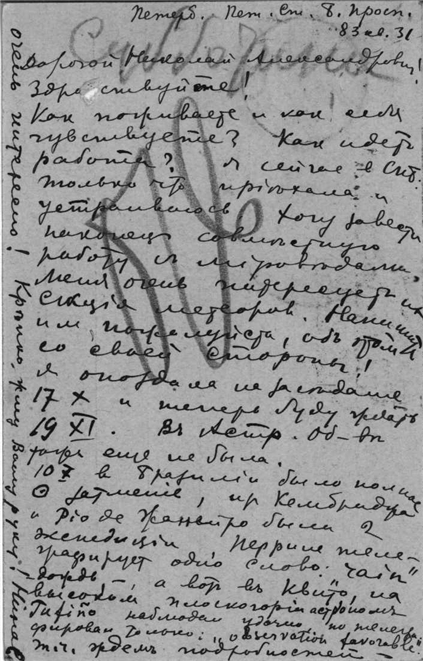 Петерб. Пет. Ст. Б. Просп.
83 кв. 31
Дорогой Николай Александрович!
Здравствуйте!
Какъ поживаете и как себя
чувствуете? Какъ идетъ
работа? Я сейчас в Спб.
только что пріѣхала и
устраиваюсь. Хочу завести
наконецъ совмѣстную
работу съ міровѣдами.
Меня очень интересуетъ их
Секція метеоров. Напишите
им пожалуйста, объ этом и
со своей стороны!
Я опоздала на засѣданіе
17 X и теперь буду ждать
19 XI. Въ Астр. Об-вѣ
еще не была.
10 X в Бразиліи было полное
затменіе, из Кембриджа
и Ріо де Жанейро были 2
экспедиціи. Перрине теле-
графирует одно слово: "rain"
дождь, а вотъ въ Квито, на
высоком плоскогоріи астрономъ
Tufiño наблюдал удачно, но телегра-
фировал только: "observation favorable."
ждемъ подробностей
очень интересно! Крѣпко жму Вашу руку! Нина